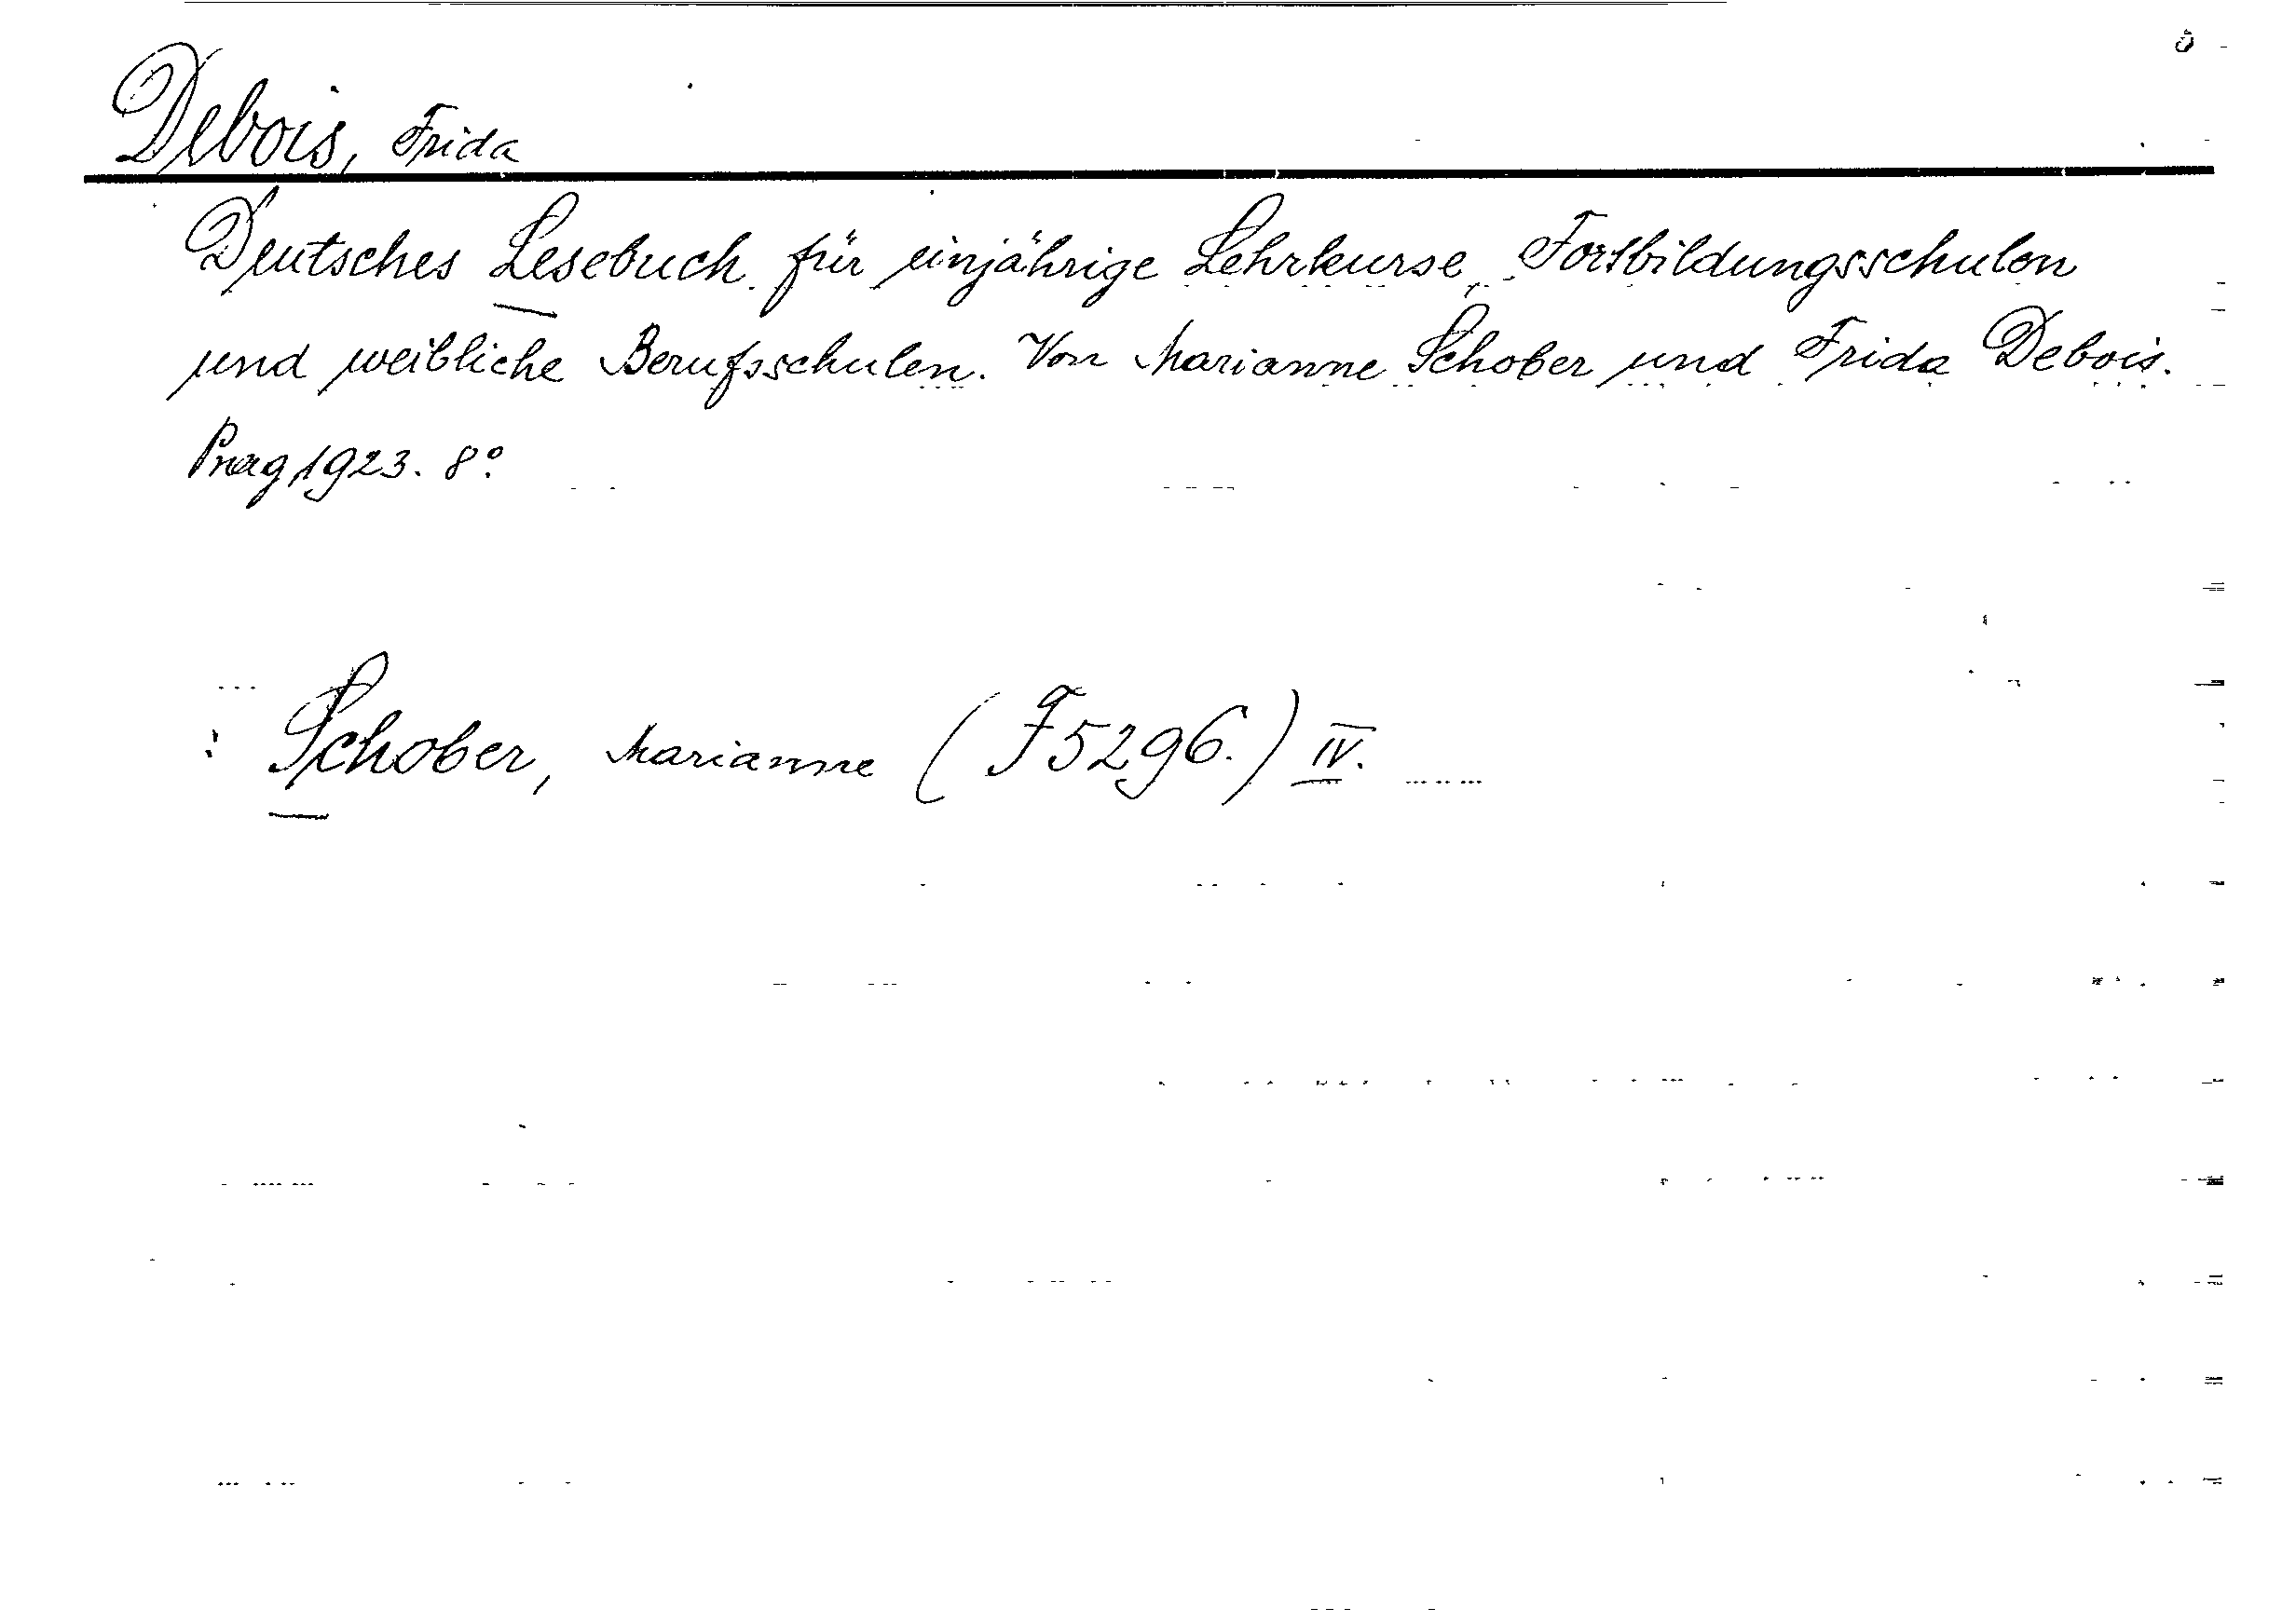 Debois, Frida
Deutsches Lesebuch für einjährige Lehrkurse, Fortbildungsschulen
und weibliche Berufsschulen. Von Marianne Schober und Frida Debois.
Prag 1923. 8°.
: Schober, Marianne (F 5296.) IV.